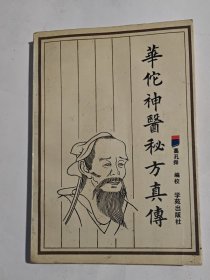 華佗神醫秘方真傳
孔祥 編校
学苑出版社